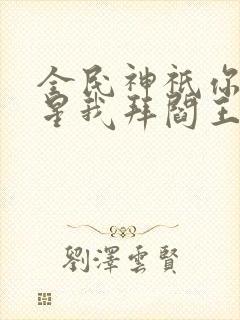 全民神祇你
星我拜閻王
劉澤雲賢